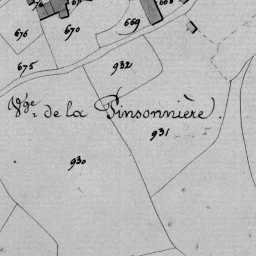 676
670
669
668
675
932
Vge de la Pinsonnière.
931
930